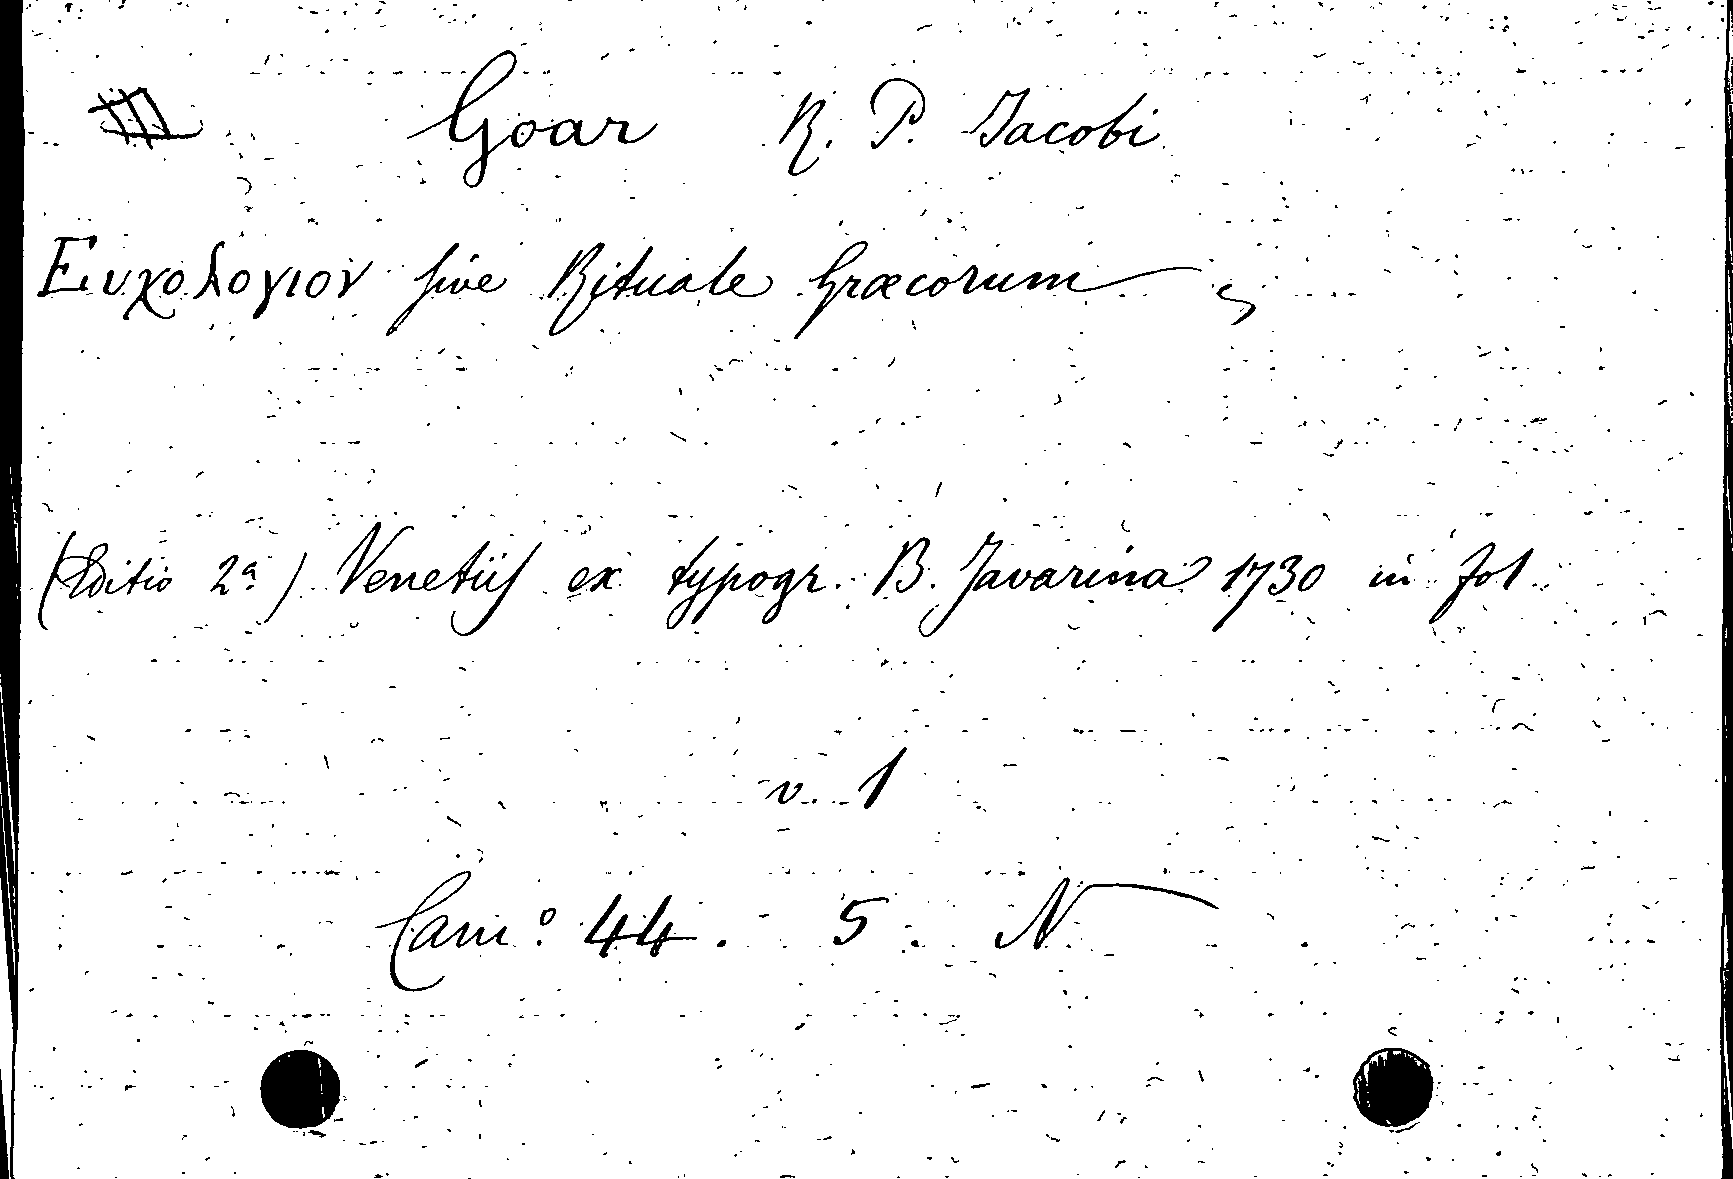 Goar R. P. Jacobi
Ευχολογιον sive Rituale Græcorum
(Editio 2ª) Venetiis ex typogr. B. Javarina 1730 in fol
v. 1
Cam° 44. 5. N